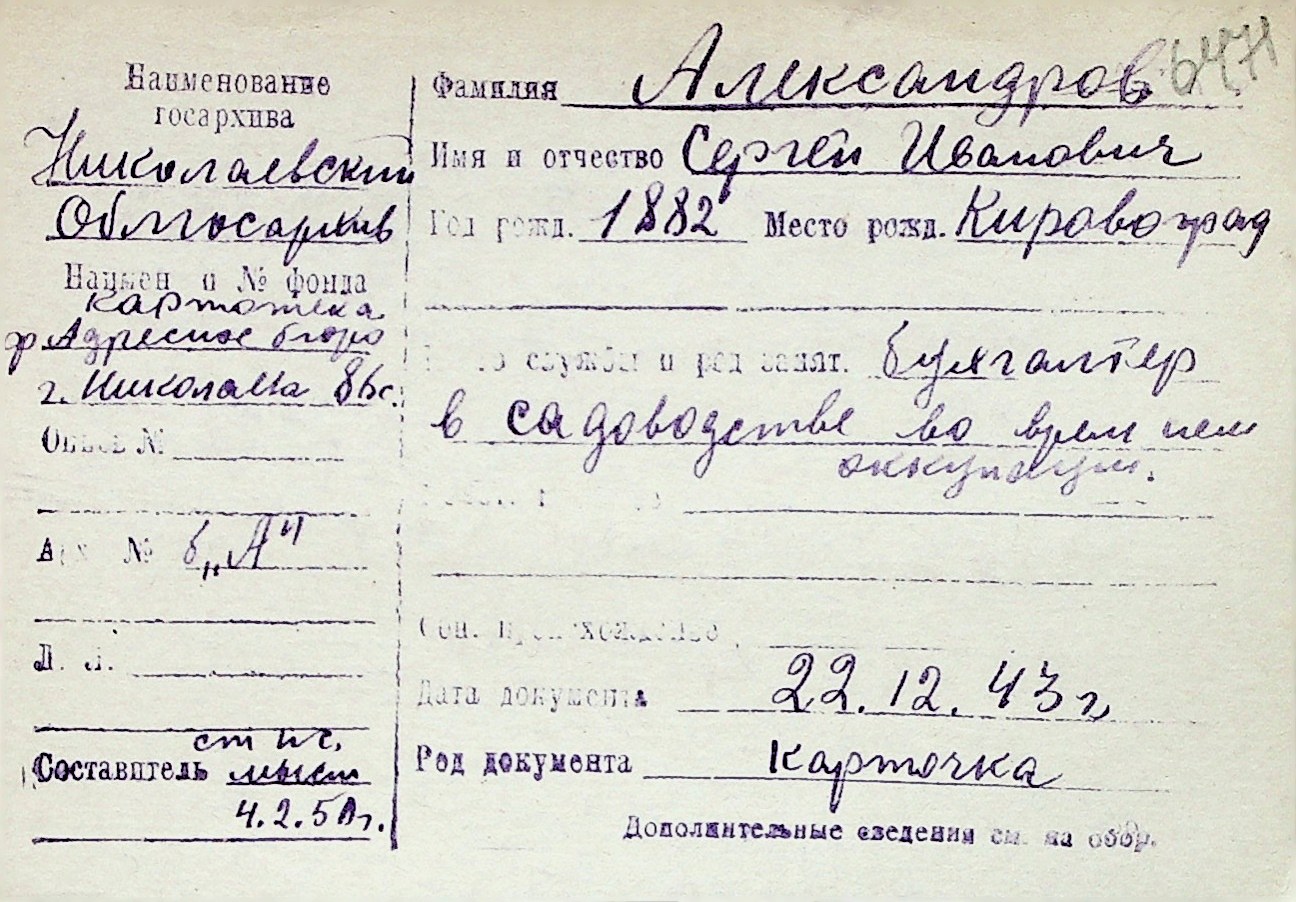 Наименование
госархива
Николаевский
Облгосархив
Наимен и № фонда
картотека
ф Адресное бюро
г. Николаева
Опись №
Арх №
б „А"
Л. Л.
Составитель
4.2.50г.
6471
Фамилия Александров
Имя и отчество Сергей Иванович
Год рожд. 1882 Место рожд. Кировоград
службы и род занят. бухгалтер
в садоводстве во врем нем
оккупации.
Соц. происхождение
Дата документа 22.12.43 г
Род документа Карточка
Дополнительные сведения см. на обор.